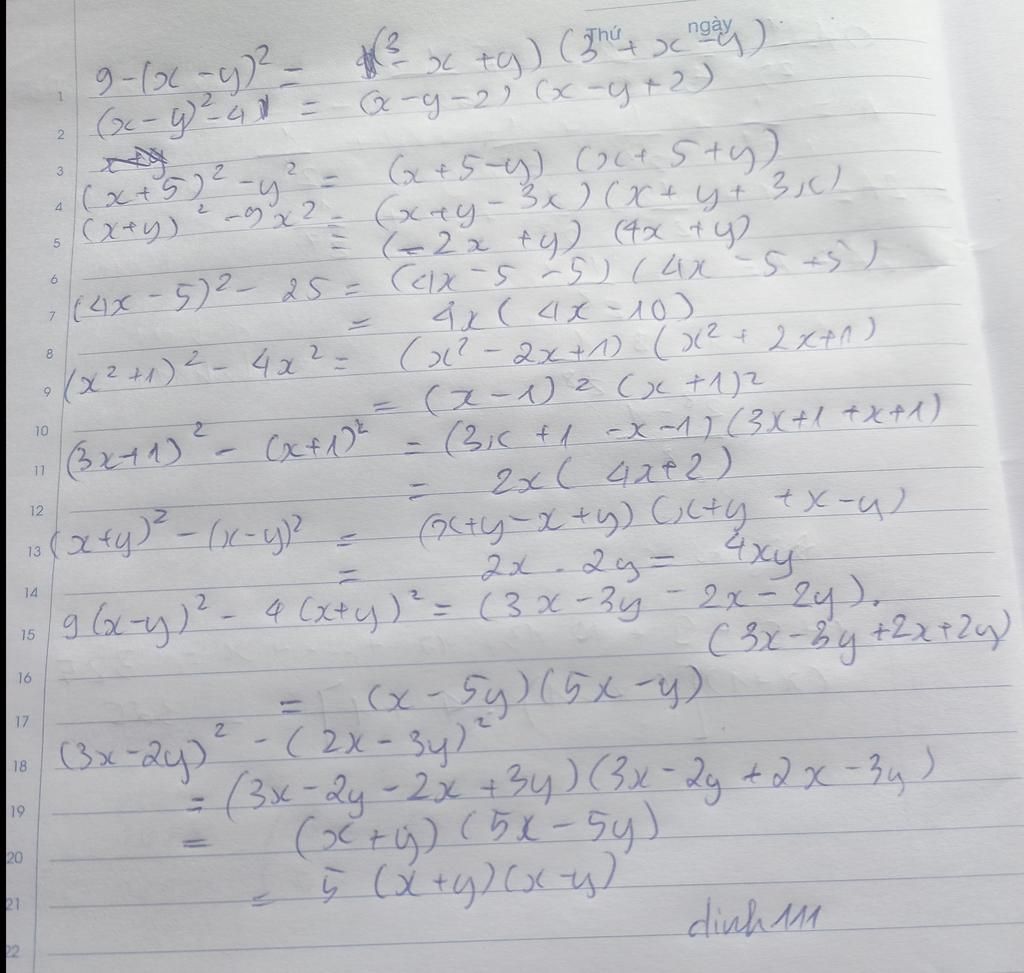 Thứ ngày
9-(x-y)² = (3-x+y)(3+x-y)
1
(x-y)²-4 = (x-y-2)(x-y+2)
2
x+y
3
(x+5)²-y² = (x+5-y)(x+5+y)
4
(x+y)²-9x² = (x+y-3x)(x+y+3x)
5
= (-2x+y)(4x+y)
6
(4x-5)²-25 = (4x-5-5)(4x-5+5)
7
= 4x(4x-10)
8
(x²+1)²-4x² = (x²-2x+1)(x²+2x+1)
9
= (x-1)²(x+1)²
10
(3x+1)²-(x+1)² = (3x+1-x-1)(3x+1+x+1)
11
= 2x(4x+2)
12
(x+y)²-(x-y)² = (x+y-x+y)(x+y+x-y)
13
= 2x.2y = 4xy
14
9(x-y)²-4(x+y)² = (3x-3y-2x-2y).
15
(3x-3y+2x+2y)
16
= (x-5y)(5x-y)
17
(3x-2y)²-(2x-3y)²
18
= (3x-2y-2x+3y)(3x-2y+2x-3y)
19
= (x+y)(5x-5y)
20
= 5(x+y)(x-y)
21
dinh111
22